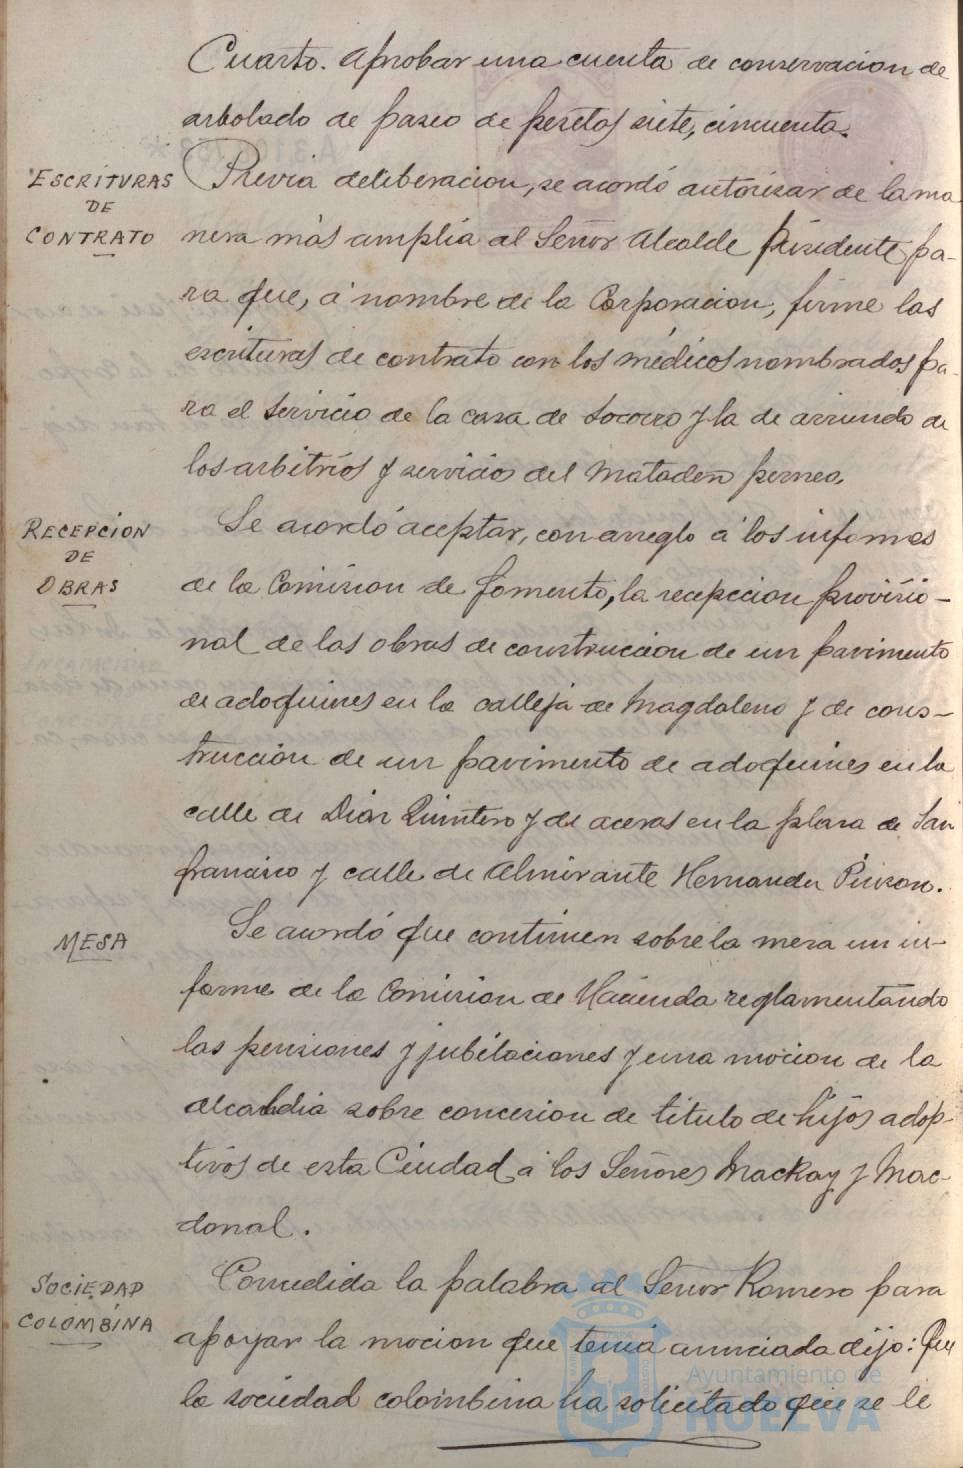 Cuarto. Aprobar una cuenta de conservacion de
arbolado de paseo de pesetas siete, cincuenta.
ESCRITURAS
DE
CONTRATO
Previa deliberacion, se acordó autorizar de la ma
nera más amplia al Señor Alcalde Presidente pa-
ra que, á nombre de la Corporacion, firme las
escrituras de contrato con los médicos nombrados pa-
ra el servicio de la casa de socorro y la de arriendo de
los arbitrios y servicios del Matadero perneo.
RECEPCION
DE
OBRAS
Se acordó aceptar, con arreglo á los informes
de la Comision de fomento, la recepcion provisio-
nal de las obras de construccion de un pavimento
de adoquines en la calleja de Magdalena y de cons-
truccion de un pavimento de adoquines en la
calle de Diaz Quintero y de aceras en la plaza de San
francisco y calle de Almirante Hernandez Pinzon.
MESA
Se acordó que continuen sobre la mesa un in-
forme de la Comision de Hacienda reglamentando
las pensiones y jubilaciones y una mocion de la
alcaldia sobre concesion de titulo de hijos adop-
tivos de esta Ciudad á los Señores Mackay y Mac-
donal.
SOCIEDAD
COLOMBINA
Concedida la palabra al Señor Romero para
apoyar la mocion que tenia anunciada dijo: Que
la sociedad colombina ha solicitado que se le
Ayuntamiento de
HUELVA